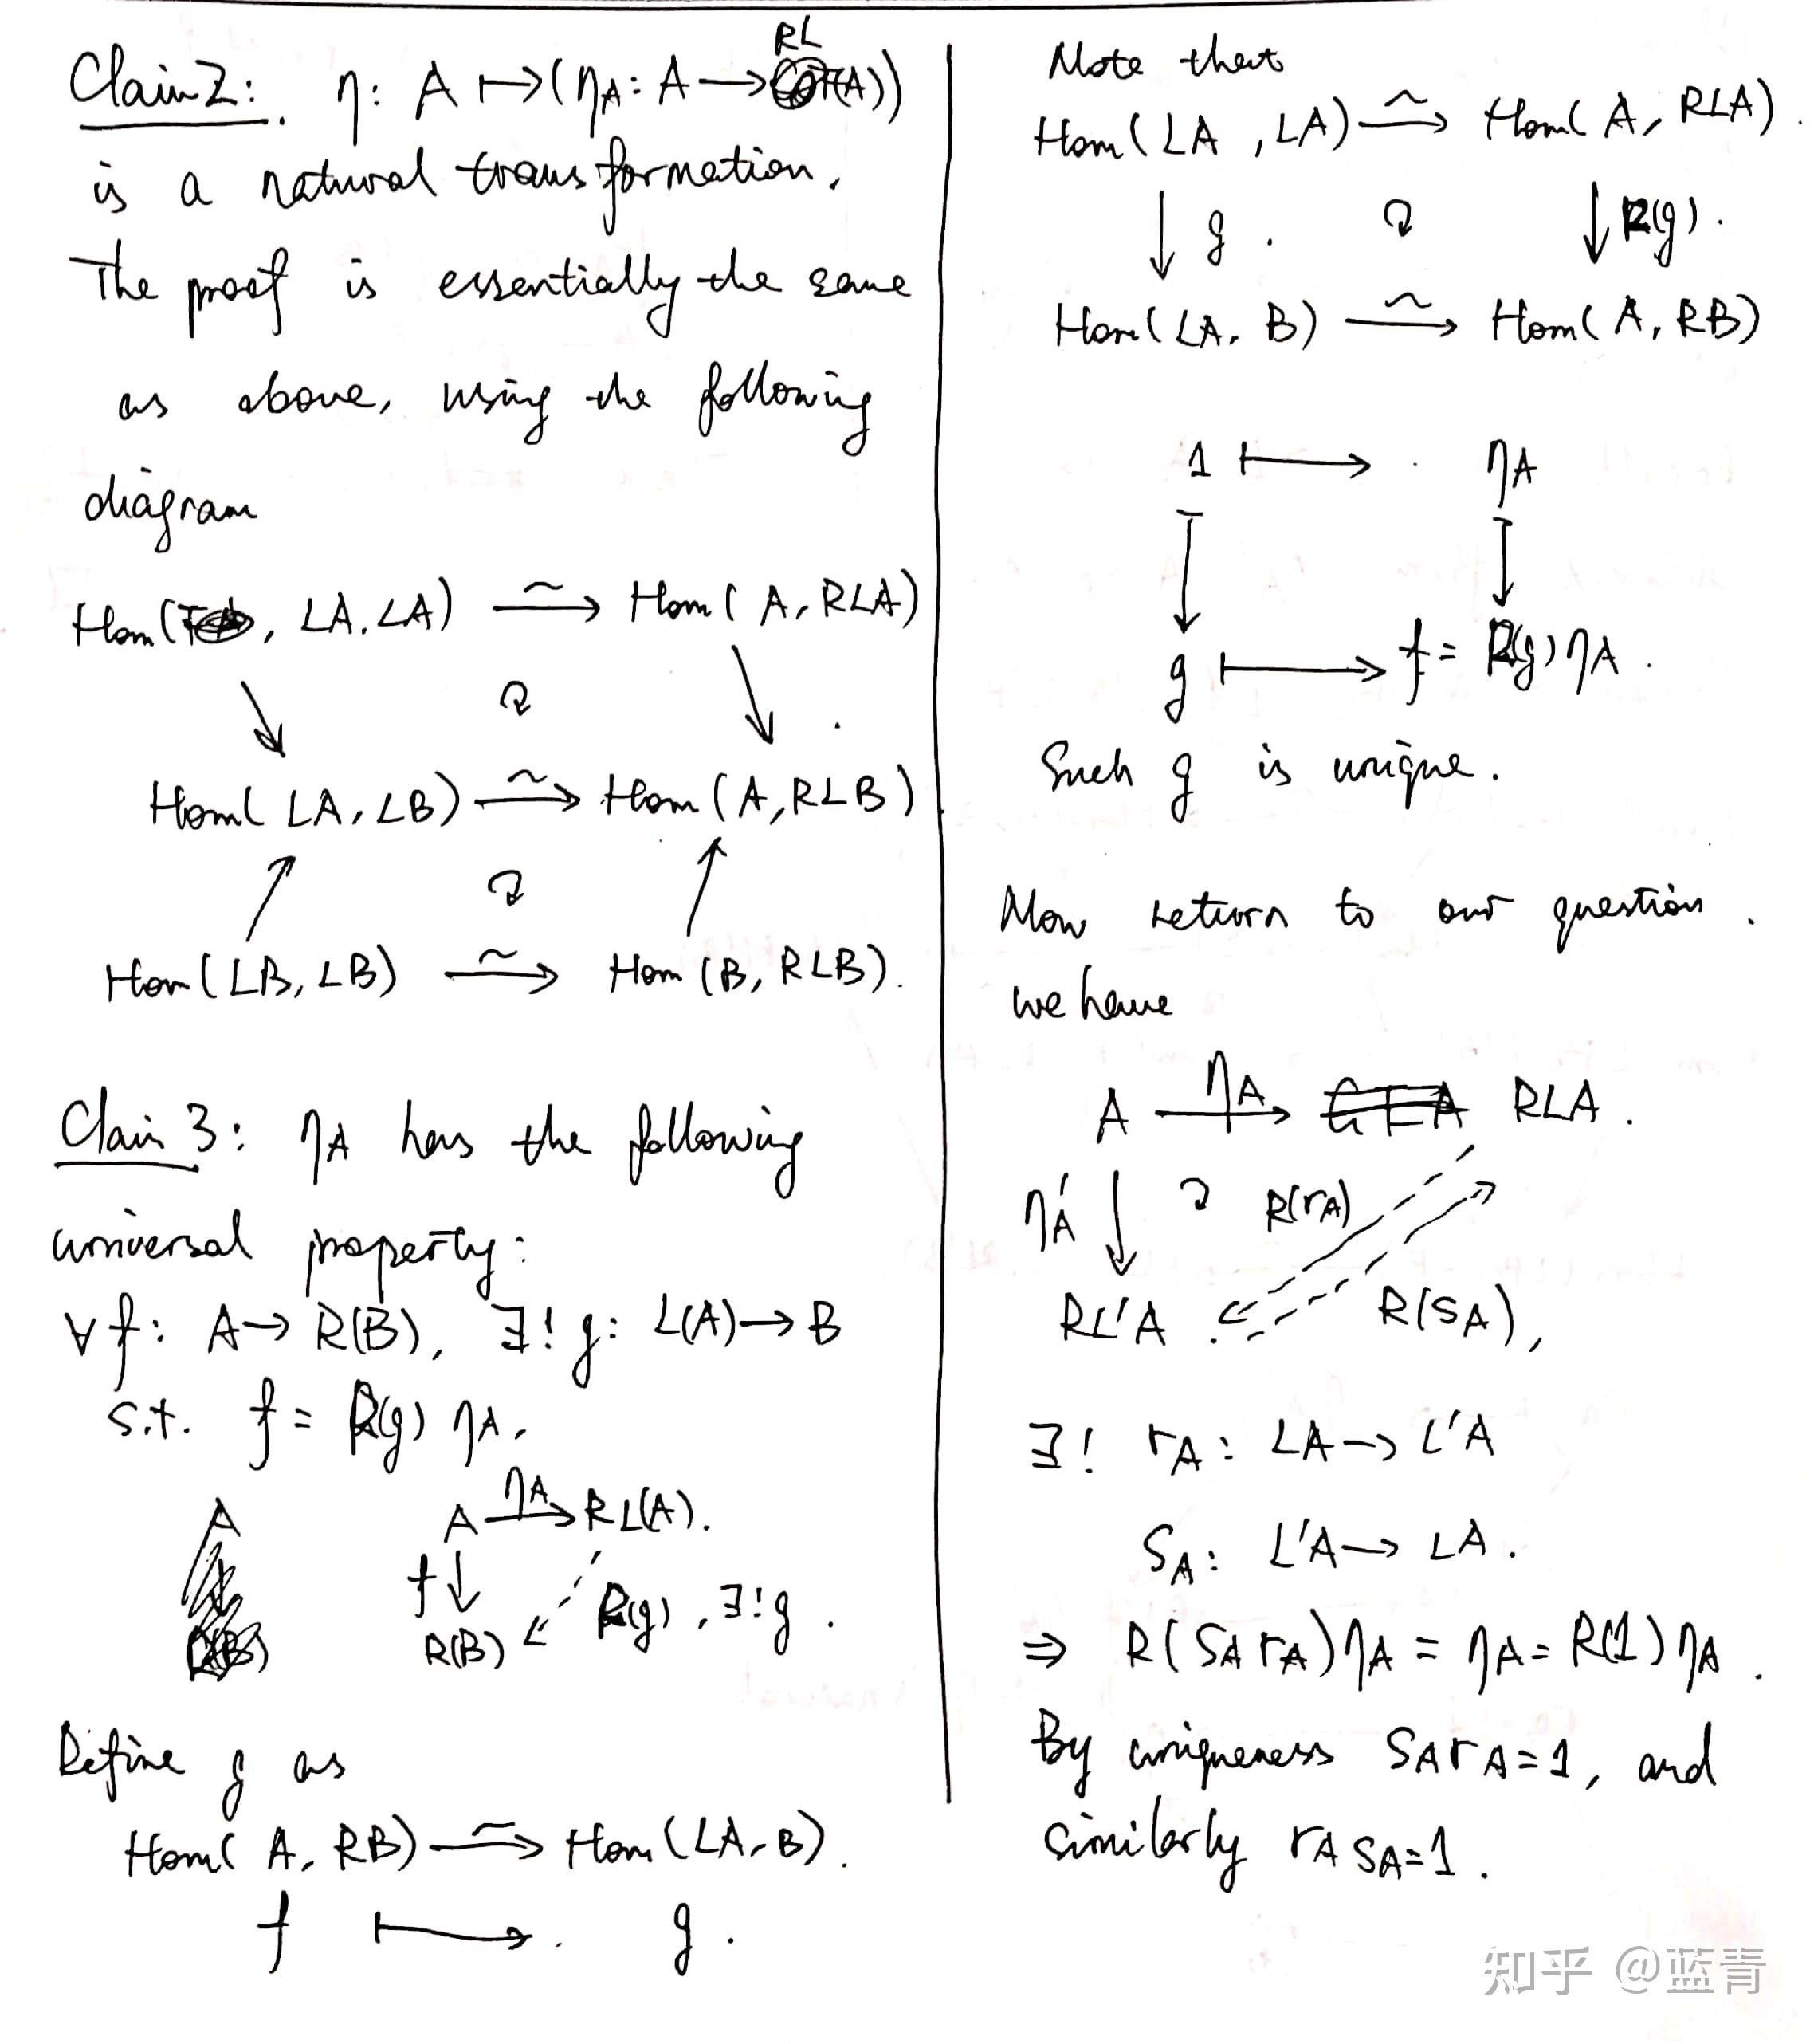 Claim 2: η: A ↦ (ηA: A → RL(A))
is a natural transformation.
The proof is essentially the same
as above, using the following
diagram
Hom( , LA, LA) ⥲ Hom(A, RLA)
↘ ↻ ↘ .
Hom(LA, LB) ⥲ Hom(A, RLB)
↗ ↻ ↗
Hom(LB, LB) ⥲ Hom(B, RLB).
Claim 3: ηA has the following
universal property:
∀ f: A → R(B), ∃! g: L(A) → B
s.t. f = R(g) ηA.
A
A ηA→ RL(A).
f ↓ R(g), ∃! g.
R(B)
Define g as
Hom(A, RB) ⥲ Hom(LA, B).
f ⟼ g.
Note that
Hom(LA, LA) ⥲ Hom(A, RLA).
↓ g. ↻ ↓ R(g).
Hom(LA, B) ⥲ Hom(A, RB)
1 ⟼ ηA
↧ ↧
g ⟼ f = R(g) ηA.
Such g is unique.
Now return to our question.
we have
A ηA→ RLA.
η'A ↓ ↻ R(rA)
RL'A R(SA),
∃! rA: LA → L'A
SA: L'A → LA.
⇒ R(SA rA) ηA = ηA = R(1) ηA.
By uniqueness SA rA = 1, and
similarly rA SA = 1.
知乎 @蓝青